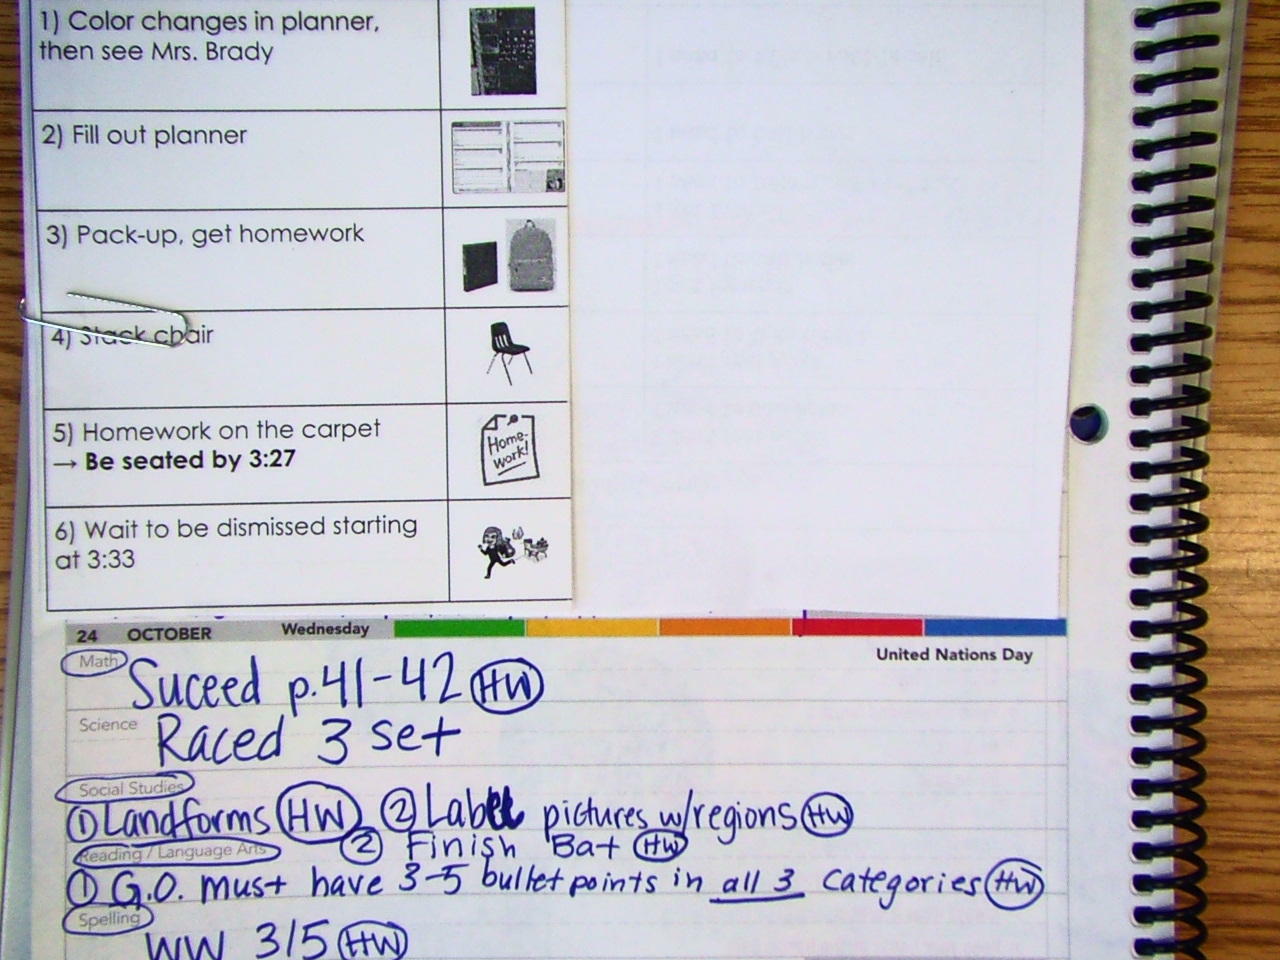 1) Color changes in planner,
then see Mrs. Brady
2) Fill out planner
3) Pack-up, get homework
4) Stack chair
5) Homework on the carpet
→ Be seated by 3:27
Home-
work!
6) Wait to be dismissed starting
at 3:33
24 OCTOBER Wednesday
United Nations Day
Math
Suceed p.41-42 HW
Science
Raced 3 set
Social Studies
① Landforms HW ② Label pictures w/regions HW
Reading / Language Arts ② Finish Bat HW
① G.O. must have 3-5 bullet points in all 3 categories HW
Spelling
WW 3/5 HW